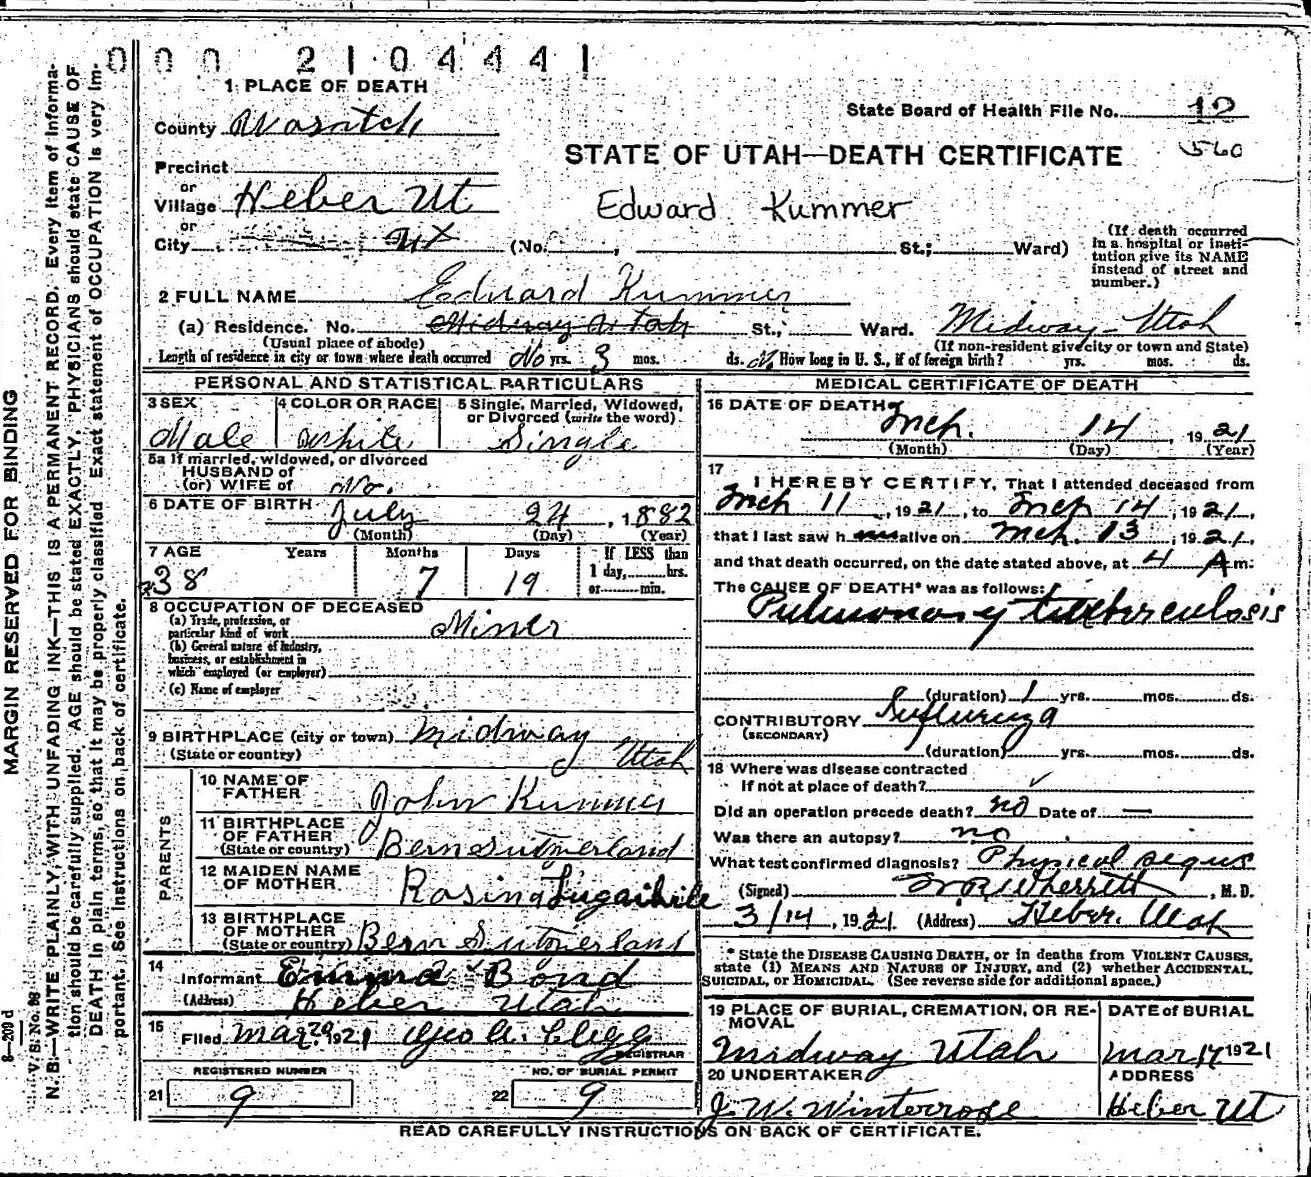 000 2104441
1 PLACE OF DEATH
County Wasatch
State Board of Health File No. 12
560
Precinct
STATE OF UTAH—DEATH CERTIFICATE
or
Village Heber Ut
Edward Kummer
or
City Ut (No. , St.; Ward)
(If death occurred in a hospital or institution give its NAME instead of street and number.)
2 FULL NAME Edward Kummer
(a) Residence. No. Midway Utah St., Ward. Midway - Utah
(Usual place of abode) (If non-resident give city or town and State)
Length of residence in city or town where death occurred No yrs. 3 mos. ds. How long in U. S., if of foreign birth? yrs. mos. ds.
PERSONAL AND STATISTICAL PARTICULARS
3 SEX
Male
4 COLOR OR RACE
White
5 Single, Married, Widowed, or Divorced (write the word)
Single
5a If married, widowed, or divorced
HUSBAND of
(or) WIFE of No.
6 DATE OF BIRTH July 24, 1882
(Month) (Day) (Year)
7 AGE Years Months Days If LESS than
38 7 19 1 day, hrs.
or min.
8 OCCUPATION OF DECEASED
(a) Trade, profession, or
particular kind of work Miner
(b) General nature of industry,
business, or establishment in
which employed (or employer)
(c) Name of employer
9 BIRTHPLACE (city or town) Midway
(State or country) Utah
PARENTS
10 NAME OF
FATHER John Kummer
11 BIRTHPLACE
OF FATHER
(State or country) Bern Sutzerland
12 MAIDEN NAME
OF MOTHER Rosina
13 BIRTHPLACE
OF MOTHER
(State or country) Bern Sutzerland
14
Informant Emma Bond
(Address) Heber Utah
15
Filed Mar. 29, 1921 Geo A. Clegg
REGISTRAR
REGISTERED NUMBER NO. OF BURIAL PERMIT
21 9 22 9
MEDICAL CERTIFICATE OF DEATH
16 DATE OF DEATH
Mch. 14, 1921
(Month) (Day) (Year)
17
I HEREBY CERTIFY, That I attended deceased from
Mch 11, 1921, to Mch 14, 1921,
that I last saw h im alive on Mch. 13, 1921,
and that death occurred, on the date stated above, at 4 A m.
The CAUSE OF DEATH* was as follows:
Pulmonary tuberculosis
(duration) 1 yrs. mos. ds.
CONTRIBUTORY Influenza
(SECONDARY)
(duration) yrs. mos. ds.
18 Where was disease contracted
If not at place of death?
Did an operation precede death? no Date of —
Was there an autopsy? no
What test confirmed diagnosis? Physical signs
(Signed) W R Wherrett, M. D.
3/14, 1921. (Address) Heber. Utah
* State the DISEASE CAUSING DEATH, or in deaths from VIOLENT CAUSES,
state (1) MEANS AND NATURE OF INJURY, and (2) whether ACCIDENTAL,
SUICIDAL, or HOMICIDAL. (See reverse side for additional space.)
19 PLACE OF BURIAL, CREMATION, OR REMOVAL
Midway Utah
DATE OF BURIAL
Mar 17 1921
20 UNDERTAKER
J. W. Winterrose
ADDRESS
Heber Ut
READ CAREFULLY INSTRUCTIONS ON BACK OF CERTIFICATE.
MARGIN RESERVED FOR BINDING
N. B.—WRITE PLAINLY, WITH UNFADING INK—THIS IS A PERMANENT RECORD. Every item of information should be carefully supplied. AGE should be stated EXACTLY. PHYSICIANS should state CAUSE OF DEATH in plain terms, so that it may be properly classified. Exact statement of OCCUPATION is very important. See instructions on back of certificate.
8—209 d